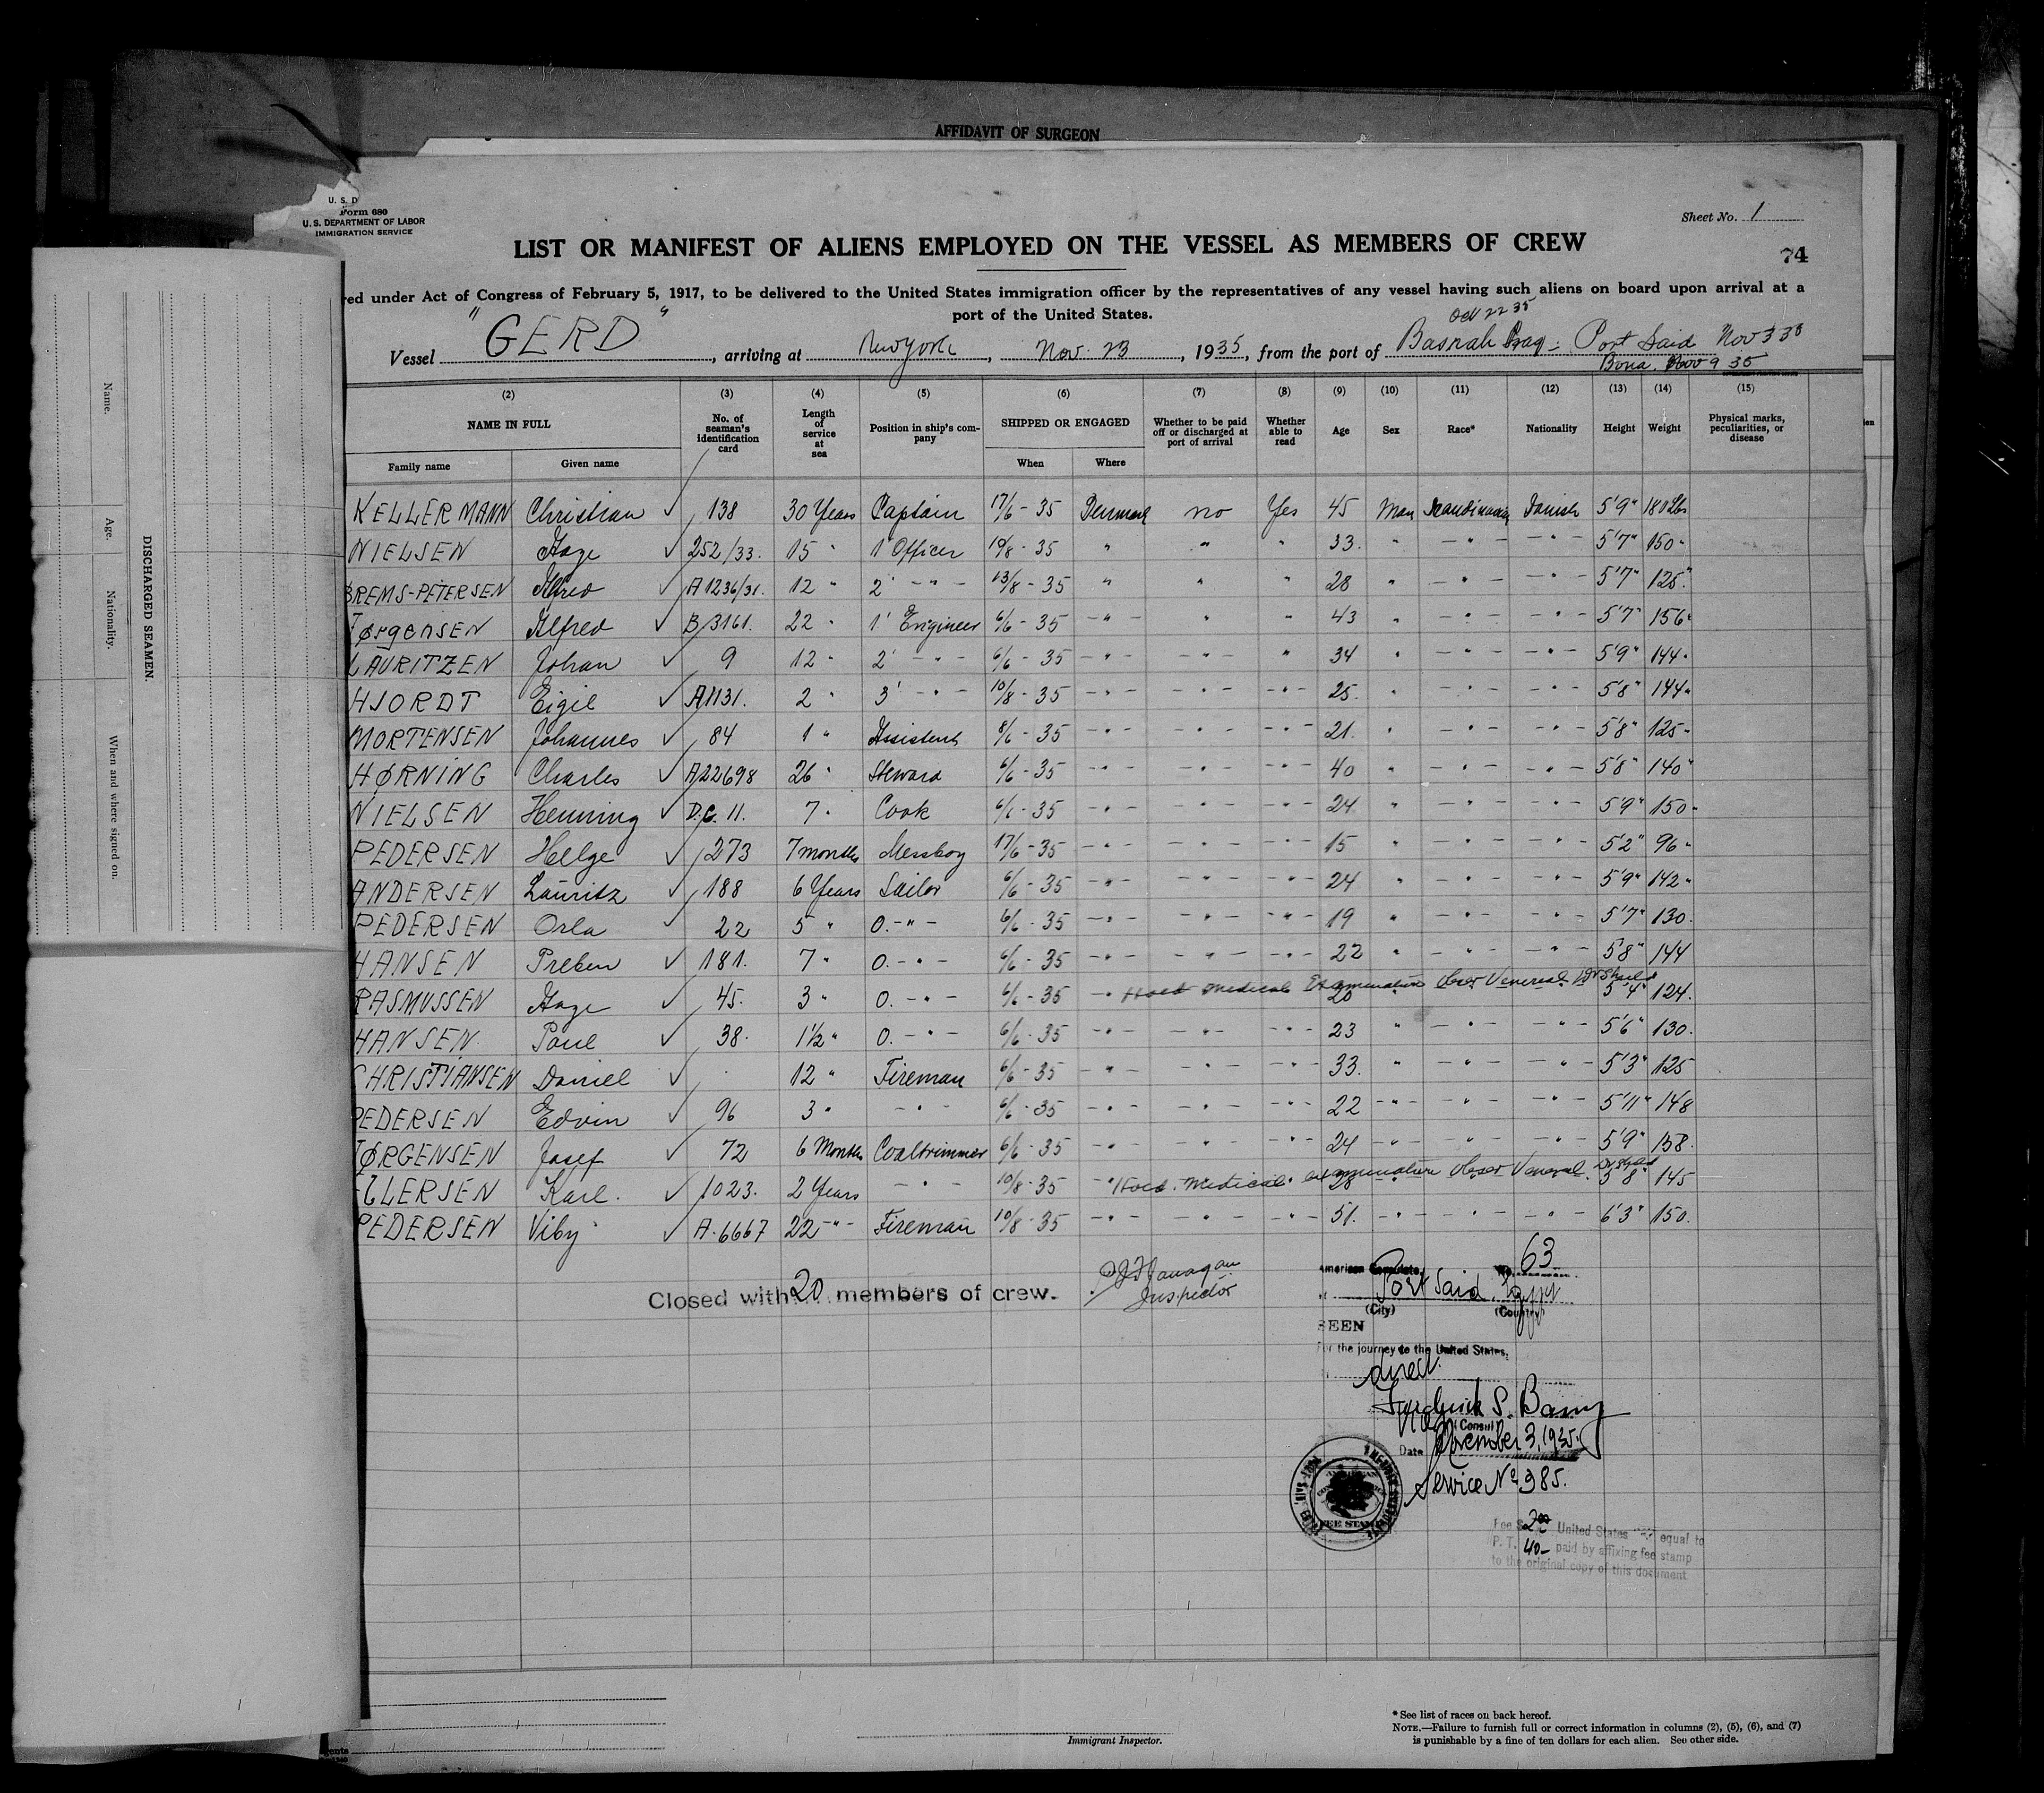 AFFIDAVIT OF SURGEON
U. S. D
Form 680
U. S. DEPARTMENT OF LABOR
IMMIGRATION SERVICE
Sheet No. 1
LIST OR MANIFEST OF ALIENS EMPLOYED ON THE VESSEL AS MEMBERS OF CREW
74
red under Act of Congress of February 5, 1917, to be delivered to the United States immigration officer by the representatives of any vessel having such aliens on board upon arrival at a
port of the United States.
Oct 22 35
Vessel "GERD", arriving at New York, Nov. 23, 1935, from the port of Basrah Iraq - Port Said Nov 3 35
Bona. Nov 9 35
(2) (3) (4) (5) (6) (7) (8) (9) (10) (11) (12) (13) (14) (15)
NAME IN FULL No. of seaman's identification card Length of service at sea Position in ship's company SHIPPED OR ENGAGED Whether to be paid off or discharged at port of arrival Whether able to read Age Sex Race* Nationality Height Weight Physical marks, peculiarities, or disease
Family name Given name When Where
KELLERMANN Christian ✓ 138 30 Years Captain 17/6 - 35 Denmark no Yes 45 Man Scandinavian Danish 5'9" 180 Lbs
NIELSEN Aage ✓ 252/33. 15 " 1' Officer 10/8 - 35 " " " 33. " - " - - " - 5'7" 150 "
BREMS-PETERSEN Alfred ✓ A1236/31. 12 " 2' - " - 13/8 - 35 " " " 28 " - " - - " - 5'7" 125"
JørgenSEN Alfred ✓ B/3161. 22 " 1' Engineer 6/6 - 35 - " - " " 43 " - " - - " - 5'7" 156"
LAURITZEN Johan ✓ 9 12 " 2' - " - 6/6 - 35 - " - - " - " 34 " - " - - " - 5'9" 144 "
HJORDT Eigil ✓ A1131. 2 " 3' - " - 10/8 - 35 - " - - " - - " - 25. " - " - - " - 5'8" 144"
MORTENSEN Johannes ✓ 84 1 " Assistent 8/6 - 35 - " - - " - - " - 21. " - " - - " - 5'8" 125 "
HØRNING Charles ✓ A22698 26 " Steward 6/6 - 35 - " - - " - - " - 40 " - " - - " - 5'8" 140"
NIELSEN Henning ✓ D.C. 11. 7 " Cook 6/6 - 35 - " - - " - - " - 24 " - " - - " - 5'9" 150 "
PEDERSEN Helge ✓ 273 7 months Messboy 17/6 - 35 - " - - " - - " - 15 " - " - - " - 5'2" 96 "
ANDERSEN Lauritz ✓ 188 6 Years Sailor 6/6 - 35 - " - - " - - " - 24 " - " - - " - 5'9" 142 "
PEDERSEN Orla ✓ 22 5 " O. - " - 6/6 - 35 - " - - " - - " - 19 " - " - - " - 5'7" 130.
HANSEN Preben ✓ 181. 7 " O. - " - 6/6 - 35 - " - - " - - " - 22 " - " - - " - 5'8" 144
Hold Medical Examination Obser Venereal
RASMUSSEN Aage ✓ 45. 3 " O. - " - 6/6 - 35 - " 20 5'4" 124.
HANSEN Poul ✓ 38. 1½ " O. - " - 6/6 - 35 - " - - " - - " - 23 " - " - - " - 5'6" 130.
CHRISTIANSEN Daniel ✓ 12 " Fireman 6/6 - 35 - " - - " - - " - 33. " - " - - " - 5'3" 125
PEDERSEN Edvin ✓ 96 3 " - " - 6/6 - 35 - " - - " - - " - 22 - " - - " - - " - 5'11" 148
JØRGENSEN Josef ✓ 72 6 Months Coaltrimmer 6/6 - 35 - " - - " - - " - 24 - " - - " - - " - 5'9" 138.
Hold. Medical examination Obser Venereal.
ELLERSEN Karl. ✓ 1023. 2 Years - " - 10/8 - 35 - " 28 5'8" 145
PEDERSEN Viby ✓ A. 6667 22 - " - Fireman 10/8 - 35 - " - - " - - " - 51. - " - - " - - " - 6'3" 150.
Closed with 20 members of crew.
Flanagan
Inspector
American Consulate, No. 63
Port Said, Egypt
(City) (Country)
SEEN
For the journey to the United States.
direct.
Consul
Date November 3, 1935.
Service No 985.
FEE STAMP
Fee $ 2.00 United States equal to
P. T. 40- paid by affixing fee stamp
to the original copy of this document
DISCHARGED SEAMEN.
Name. Age. Nationality. When and where signed on.
Immigrant Inspector.
* See list of races on back hereof.
NOTE.—Failure to furnish full or correct information in columns (2), (5), (6), and (7)
is punishable by a fine of ten dollars for each alien. See other side.